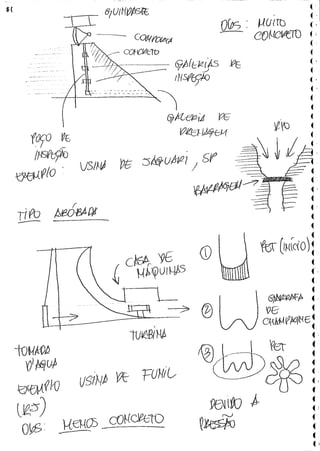 GUINDASTE
OBS: MUITO
CONCRETO
COMPORTA
CONCRETO
GALERIAS DE
INSPEÇÃO
GALERIA DE
DRENAGEM
POÇO DE
INSPEÇÃO
EXEMPLO: USINA DE JAGUARI, SP
RIO
BARRAGEM
TIPO ABÓBADA
CASA DE
MÁQUINAS
TURBINA
TOMADA
D'AGUA
EXEMPLO USINA DE FUNIL
(RJ)
OBS: MENOS CONCRETO
1 PET (INÍCIO)
2 GARRAFA
DE
CHAMPAGNE
3 PET
DEVIDO A
PRESSÃO